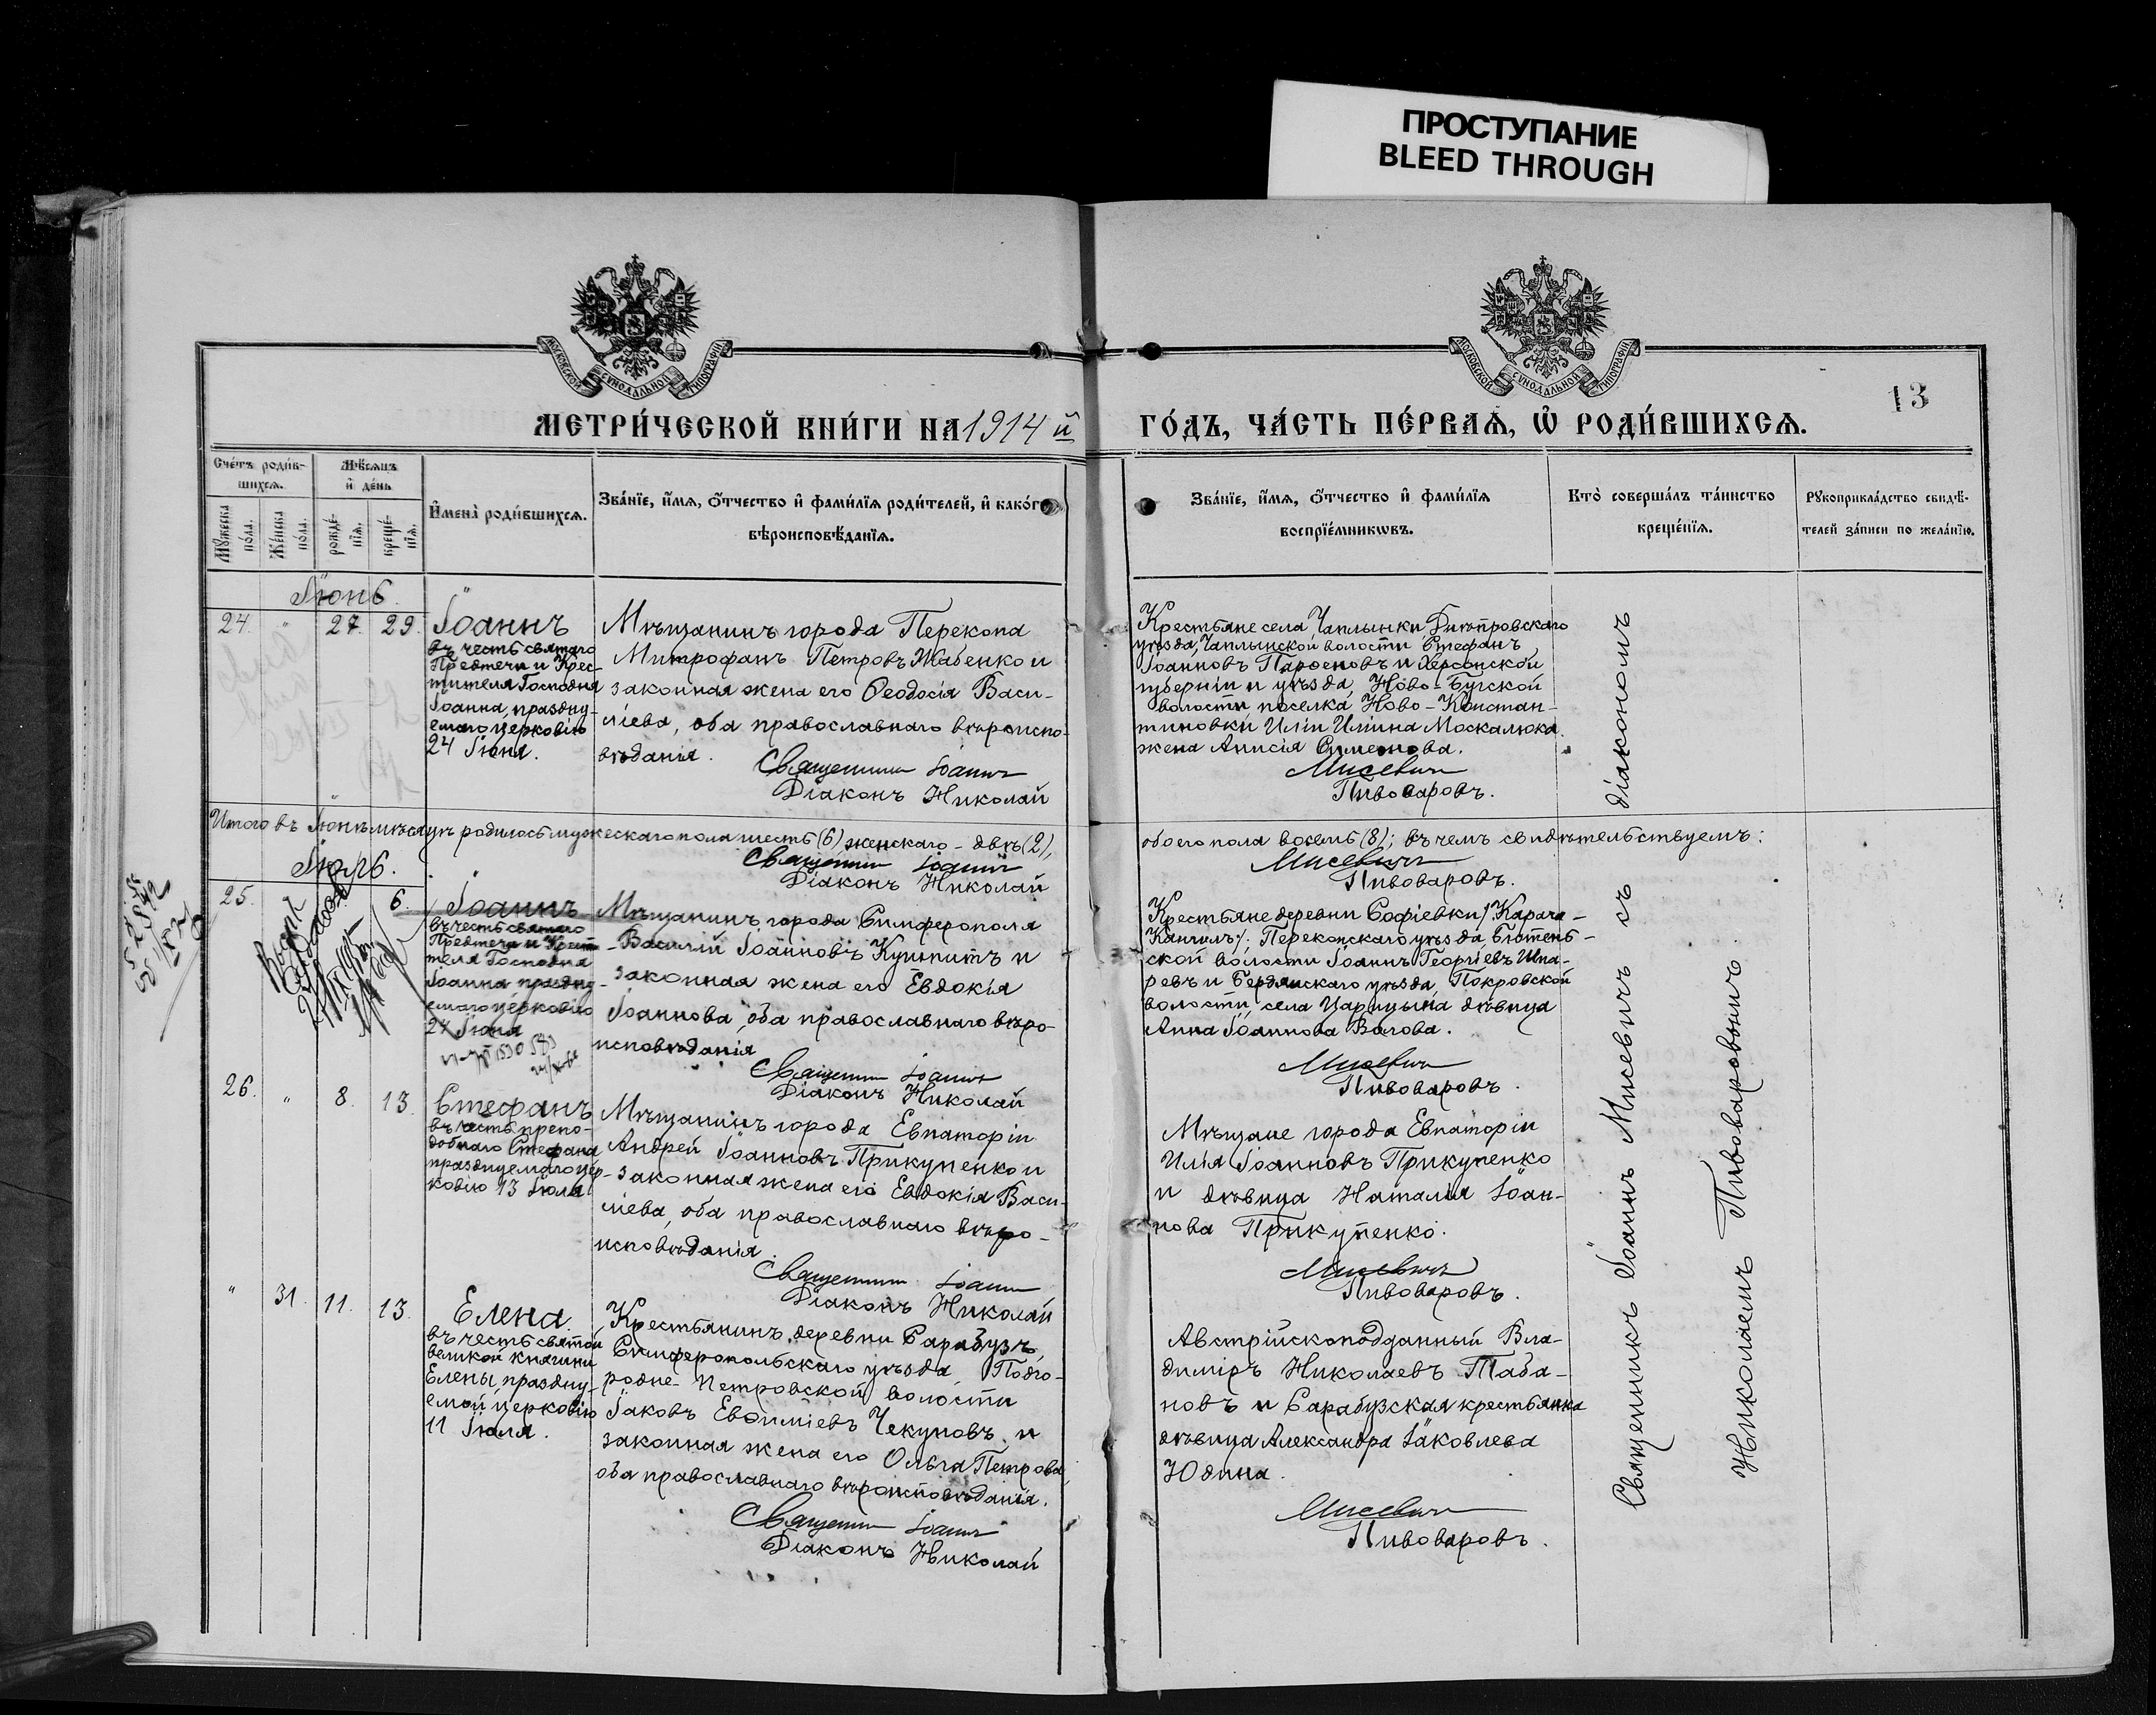 ПРОСТУПАНИЕ
BLEED THROUGH
МОСКОВСКОЙ СѴНОДАЛЬНОЙ ТИПОГРАФІИ
МОСКОВСКОЙ СѴНОДАЛЬНОЙ ТИПОГРАФІИ
13
МЕТРИ́ЧЕСКОЙ КНИ́ГИ НА 1914 й
ГО́ДЪ, ЧА́СТЬ ПЕ́РВАѦ, Ѡ҆ РОДИ́ВШИХСѦ.
Сче́тъ роди́в-
шихсѧ.
Мѣ́сѧцъ
и҆ де́нь
Мꙋ́жеска
по́ла.
Же́нска
по́ла.
рожде́-
нїѧ.
креще́-
нїѧ.
И҆мена̀ роди́вшихсѧ.
Зва́нїе, и҆́мѧ, ѻ҆́тчество и҆ фами́лїѧ роди́телей, и҆ како́гѡ
вѣроисповѣ́данїѧ.
Зва́нїе, и҆́мѧ, ѻ҆́тчество и҆ фами́лїѧ
воспрїе́мникѡвъ.
Кто̀ соверша́лъ та́инство
креще́нїѧ.
Рꙋкоприкла́дство свидѣ́-
телей за́писи по жела́нїю.
Іюнь.
24. " 27. 29.
Іоаннъ
въ честь святаго
Предтечи и Крес-
тителя Господня
Іоанна, праздну-
емаго церковію
24 Іюня.
Мѣщанинъ города Перекопа
Митрофанъ Петровъ Жабенко и
законная жена его Ѳеодосія Васи-
ліева, оба православнаго вѣроиспо-
вѣданія.
Священникъ Іоаннъ
Діаконъ Николай
Крестьяне села Чаплынки, Днѣпровскаго
уѣзда, Чаплынской волости Стефанъ
Іоанновъ Парѳеновъ и Херсонской
губерніи и уѣзда, Ново-Бугской
волости поселка Ново-Констан-
тиновки Иліи Ильина Москалюка
жена Анисія Симеонова.
Мисевичъ
Пивоваровъ.
Итого въ Іюнѣ мѣсяцѣ родилось мужескаго пола шесть (6) женскаго - двѣ (2),
обоего пола восемь (8); въ чемъ свидѣтельствуемъ:
Священникъ Іоаннъ
Діаконъ Николай
Мисевичъ
Пивоваровъ.
Іюль.
25. 6.
Іоаннъ
въ честь святаго
Предтечи и Крести-
теля Господня
Іоанна праздну-
емаго церковію
24 Іюня
Мѣщанинъ города Симферополя
Василій Іоанновъ и
законная жена его Евдокія
Іоаннова, оба православнаго вѣро-
исповѣданія
Священникъ Іоаннъ
Діаконъ Николай
Крестьяне деревни Софіевки /Карача-
Кангилъ/, Перекопскаго уѣзда,
ской волости Іоаннъ Георгіевъ Шпа-
ревъ и Бердянскаго уѣзда, Покровской
волости, села Царицына дѣвица
Анна Іоаннова Валова.
Мисевичъ
Пивоваровъ.
26. " 8. 13.
Стефанъ
въ честь препо-
добнаго Стефана
празднуемаго цер-
ковію 13 Іюля
Мѣщанинъ города Евпаторіи
Андрей Іоанновъ Прикупенко и
законная жена его Евдокія Васи-
ліева, оба православнаго вѣро-
исповѣданія.
Священникъ Іоаннъ
Діаконъ Николай
Мѣщане города Евпаторіи
Илія Іоанновъ Прикупенко
и дѣвица Наталія Іоан-
нова Прикупенко.
Мисевичъ
Пивоваровъ.
" 31. 11. 13.
Елена.
въ честь святой
великой княгини
Елены, праздну-
емой церковію
11 Іюля.
Крестьянинъ деревни Сарабузъ,
Симферопольскаго уѣзда, Подго-
родне-Петровской волости
Іаковъ Евѳиміевъ Чекуновъ и
законная жена его Ольга Петрова,
оба православнаго вѣроисповѣданія.
Священникъ Іоаннъ
Діаконъ Николай
Австрійскоподданный Вла-
диміръ Николаевъ Таба-
новъ и Сарабузская крестьянка
дѣвица Александра Іаковлева
Юдина.
Мисевичъ
Пивоваровъ.
Священникъ Іоаннъ Мисевичъ съ діакономъ
Николаемъ Пивоваровымъ.